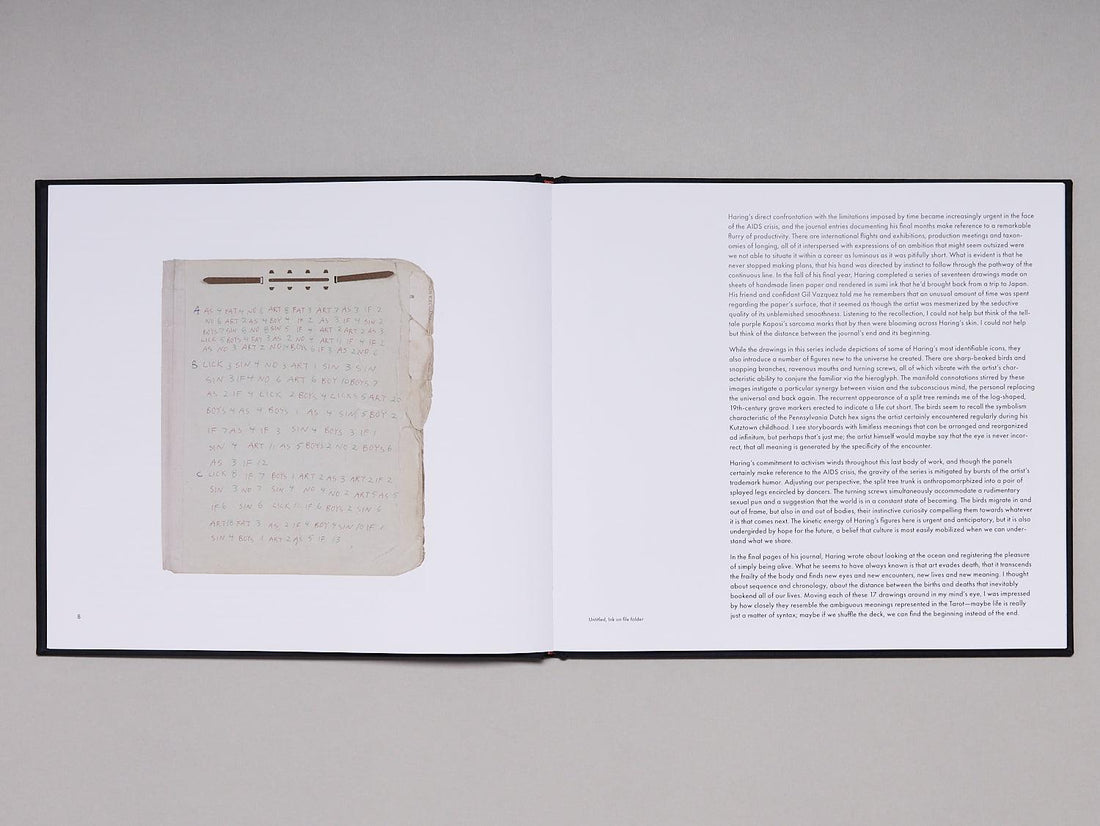 A AS 4 FAT 4 NO 6 ART 8 FAT 1 ART 2 AS 3 IF 2
NO 6 ART 2 AS 4 BOY 4 IF 2 AS 3 IF 4 SIN 2
BOYS 7 SIN 8 NO 8 SIN 5 IF 4 ART 2 ART 2 AS 3
LICK 5 BOYS 4 FAT 3 AS 2 NO 4 ART 11 IF 4 IF 2
AS NO 3 ART 2 NO BOY 6 IF 3 AS 2 NO 6
B LICK 3 SIN 4 NO 3 ART 1 SIN 3 SIN
SIN 3 IF 4 NO 6 ART 6 BOY 10 BOYS 7
AS 2 IF 4 LICK 2 BOYS 4 LICKS 5 ART 20
BOYS 4 AS 4 BOYS 1 AS 4 SIN 5 BOY 2
IF 7 AS 4 IF 3 SIN 4 BOYS 3 IF 1
SIN 4 ART 11 AS 5 BOYS 2 NO 2 BOYS 6
AS 3 IF 12
C LICK 8 IF 7 BOYS 1 ART 2 AS 3 ART 2 IF 2
SIN 3 NO 7 SIN 4 NO 4 NO 2 ART 5 AS 5
IF 6 SIN 6 LICK 11 IF 6 BOYS 2 SIN 6
ART 10 FAT 3 AS 2 IF 4 BOY 9 SIN 10 IF
SIN 4 BOYS 1 ART 2 AS 5 IF 13
8
Untitled, Ink on file folder
Haring's direct confrontation with the limitations imposed by time became increasingly urgent in the face
of the AIDS crisis, and the journal entries documenting his final months make reference to a remarkable
flurry of productivity. There are international flights and exhibitions, production meetings and taxon-
omies of longing, all of it interspersed with expressions of an ambition that might seem outsized were
we not able to situate it within a career as luminous as it was pitifully short. What is evident is that he
never stopped making plans, that his hand was directed by instinct to follow through the pathway of the
continuous line. In the fall of his final year, Haring completed a series of seventeen drawings made on
sheets of handmade linen paper and rendered in sumi ink that he'd brought back from a trip to Japan.
His friend and confidant Gil Vazquez told me he remembers that an unusual amount of time was spent
regarding the paper's surface, that it seemed as though the artist was mesmerized by the seductive
quality of its unblemished smoothness. Listening to the recollection, I could not help but think of the tell-
tale purple Kaposi's sarcoma marks that by then were blooming across Haring's skin. I could not help
but think of the distance between the journal's end and its beginning.
While the drawings in this series include depictions of some of Haring's most identifiable icons, they
also introduce a number of figures new to the universe he created. There are sharp-beaked birds and
snapping branches, ravenous mouths and turning screws, all of which vibrate with the artist's char-
acteristic ability to conjure the familiar via the hieroglyph. The manifold connotations stirred by these
images instigate a particular synergy between vision and the subconscious mind, the personal replacing
the universal and back again. The recurrent appearance of a split tree reminds me of the log-shaped,
19th-century grave markers erected to indicate a life cut short. The birds seem to recall the symbolism
characteristic of the Pennsylvania Dutch hex signs the artist certainly encountered regularly during his
Kutztown childhood. I see storyboards with limitless meanings that can be arranged and reorganized
ad infinitum, but perhaps that's just me; the artist himself would maybe say that the eye is never incor-
rect, that all meaning is generated by the specificity of the encounter.
Haring's commitment to activism winds throughout this last body of work, and though the panels
certainly make reference to the AIDS crisis, the gravity of the series is mitigated by bursts of the artist's
trademark humor. Adjusting our perspective, the split tree trunk is anthropomorphized into a pair of
splayed legs encircled by dancers. The turning screws simultaneously accommodate a rudimentary
sexual pun and a suggestion that the world is in a constant state of becoming. The birds migrate in and
out of frame, but also in and out of bodies, their instinctive curiosity compelling them towards whatever
it is that comes next. The kinetic energy of Haring's figures here is urgent and anticipatory, but it is also
undergirded by hope for the future, a belief that culture is most easily mobilized when we can under-
stand what we share.
In the final pages of his journal, Haring wrote about looking at the ocean and registering the pleasure
of simply being alive. What he seems to have always known is that art evades death, that it transcends
the frailty of the body and finds new eyes and new encounters, new lives and new meaning. I thought
about sequence and chronology, about the distance between the births and deaths that inevitably
bookend all of our lives. Moving each of these 17 drawings around in my mind's eye, I was impressed
by how closely they resemble the ambiguous meanings represented in the Tarot—maybe life is really
just a matter of syntax; maybe if we shuffle the deck, we can find the beginning instead of the end.